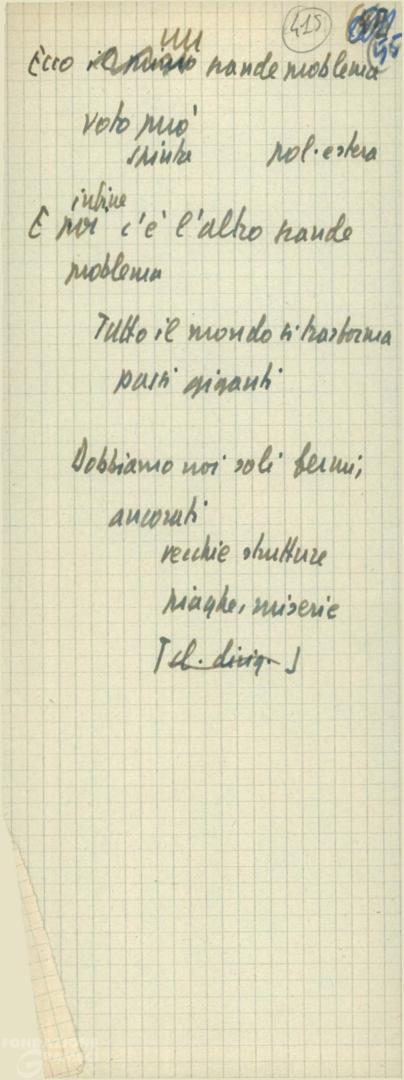 415
45
un
Ecco il primo grande problema
voto può
spinta pol. estera
infine
E poi c'è l'altro grande
problema
Tutto il mondo si trasforma
passi giganti
Dobbiamo noi soli fermi,
ancorati
vecchie strutture
piaghe, miserie
[cl. dirig.]
FONDAZIONE